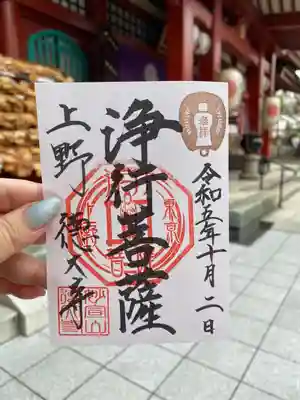 奉拝
令和五年十月二日
浄行菩薩
上野 徳大寺
東京